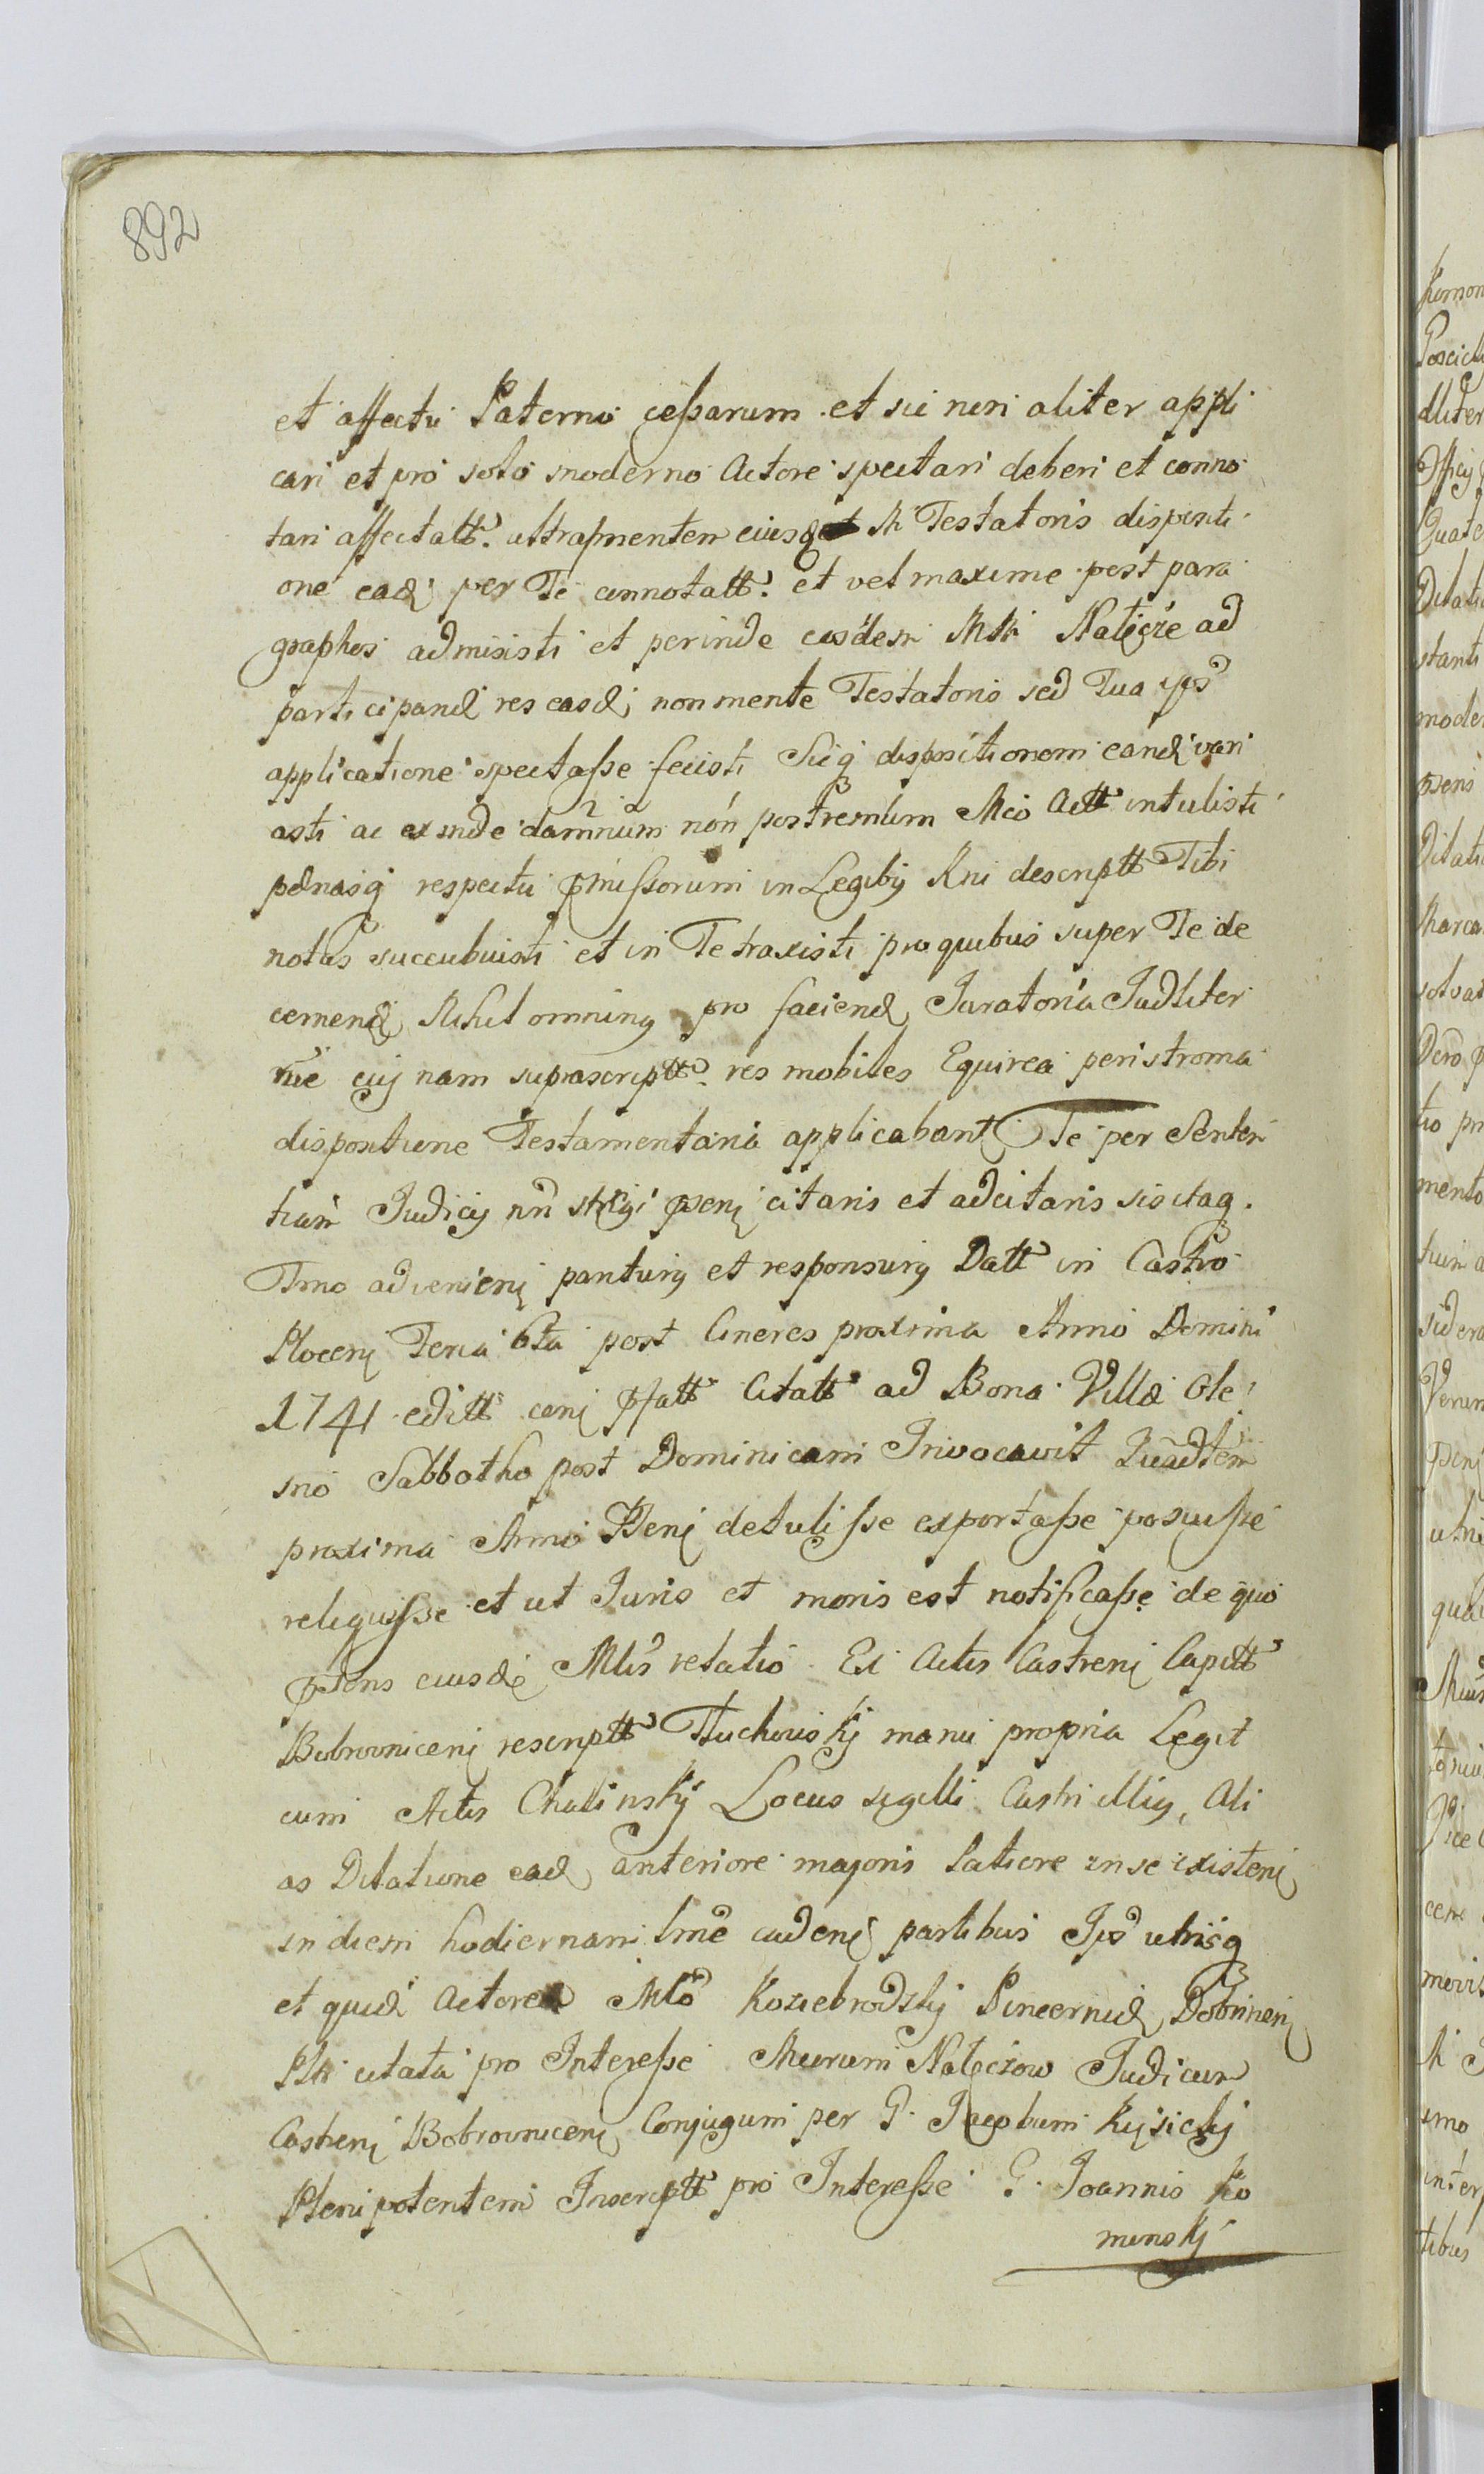 892
et affectu Paterno cessarum et sic non aliter appli
cari et pro solo moderno Actore spectari deberi et conno
tari affectatt. ultra mentem eiusd M Testatoris dispositi
one ead per Te connotatt. et vel maxime post para
graphos admisisti et perinde eosdem Mk Natęcze ad
participand res easd, non mente Testatoris sed Tua ips
applicatione spectasse fecisti Sicq dispositionem eand vari
asti ac ex inde damnum non postremum Mco Actt intulisti
pænasq respectu pmissorum in Legiby Rni descriptt Tibi
notas succubuisti et in Te traxisti pro quibus super Te de
cernend Nihil ominus pro faciend Juratoria Judliter
me cuj nam suprascriptt res mobiles Equirea peristroma
dispositione Testamentaria applicabant Te per Senten
tiam Judicy citaris et adcitaris sis itaq.
Tmo advenienj pariturg et responsurg Datt in Castro
Plocenj Feria 6ta post Cineres proxima Anno Domini
1741 editt cenj pfatt Citatt ad Bona Villæ Ole
sno Sabbatho post Dominicam Invocavit Quadtem
proxima Anno Psenj detulisse exportasse posuisse
reliquisse et ut Juris et moris est notificasse de quo
psens eiusde Mtis relatio Ex Actis Castrenj Capitt
Bobrovnicenj rescriptt Tłuchowskj manu propria Legit
cum Actis Chalinskj Locus sigilli Castri illig, Ali
as Dilatione ead anteriore majoris Latiore in se existenj
in diem hodiernam tme cadenj partibus Ips utrisq
et quid Actore Mco Koziebrodzkj Pincernid Dobrinenj
Plk citata pro Interesse Mcorum Natęczow Judicum
Castrenj Bobrovnicenj Conjugum per G. Jacobum Kijsickj
Plenipotentem Inscriptt pro Interesse G. Joannis Ko
minskj